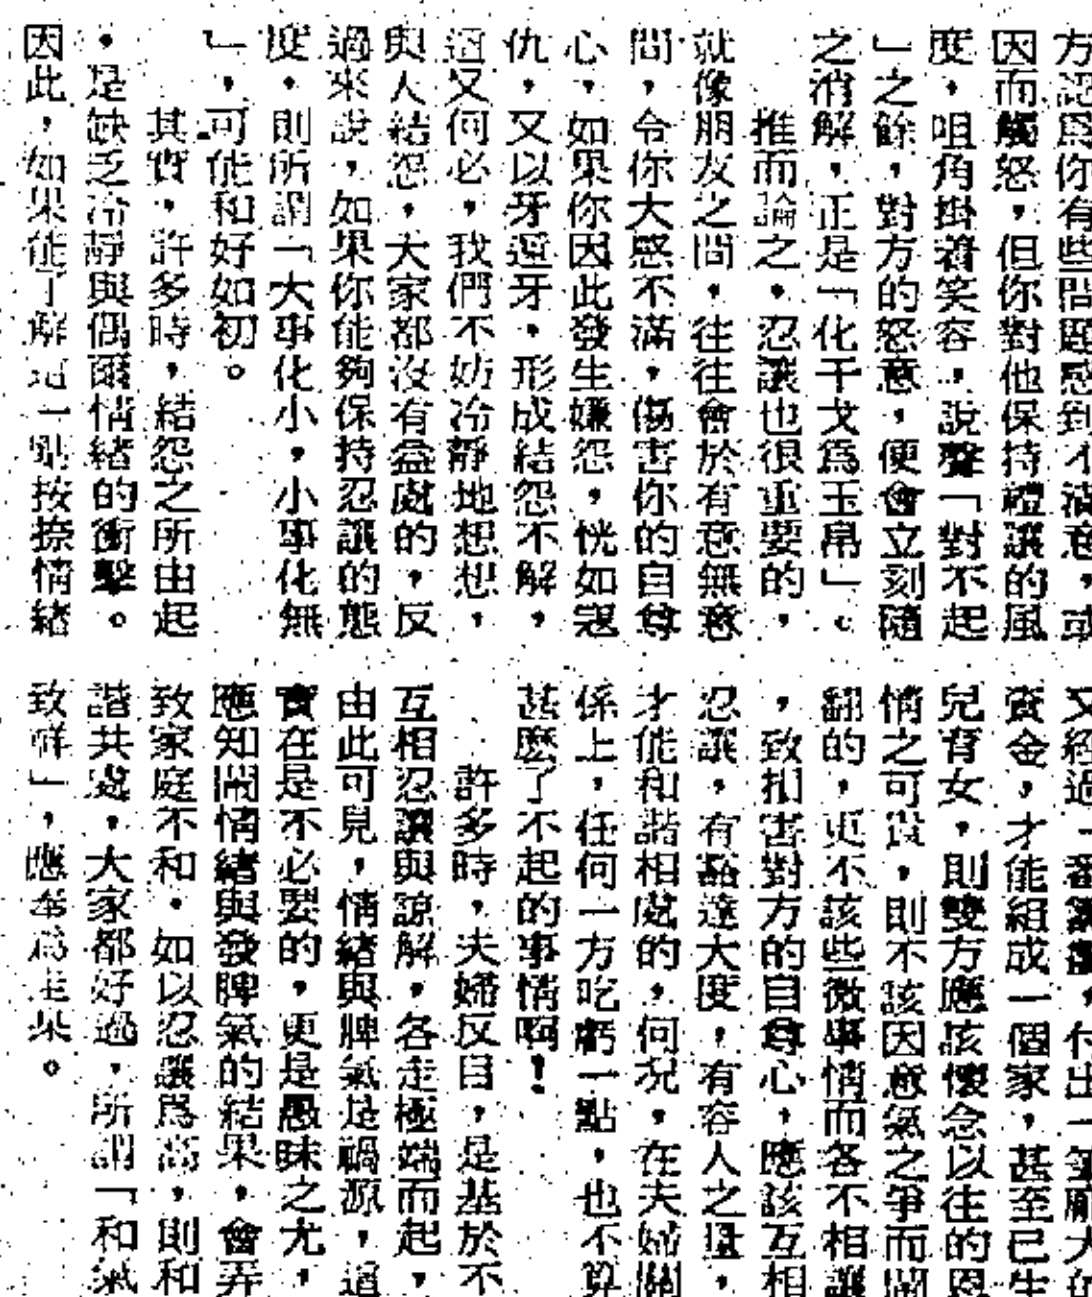 方認爲你有些問題感到不滿意，或
因而觸怒，但你對他保持禮讓的風
度，咀角掛着笑容，說聲「對不起
」之餘，對方的怒意，便會立刻隨
之消解，正是「化干戈爲玉帛」。
推而論之，忍讓也很重要的，
就像朋友之間，往往會於有意無意
間，令你大惑不滿，傷害你的自尊
心，如果你因此發生嫌怨，恍如寇
仇，又以牙還牙，形成結怨不解，
這又何必，我們不妨冷靜地想想，
與人結怨，大家都沒有益處的，反
過來說，如果你能夠保持忍讓的態
度，則所謂「大事化小，小事化無
」，可能和好如初。
其實，許多時，結怨之所由起
，是缺乏冷靜與偶爾情緒的衝擊。
因此，如果能了解這一點按捺情緒
又經過，付出一筆龐大的
資金，才能組成一個家，甚至已生
兒育女，則雙方應該懷念以往的恩
情之可貴，則不該因意氣之爭而鬧
翻的，更不該些微事情而各不相讓
，致損害對方的自尊心，應該互相
忍讓，有豁達大度，有容人之量，
才能和諧相處的，何況，在夫婦關
係上，任何一方吃虧一點，也不算
甚麼了不起的事情啊！
許多時，夫婦反目，是基於不
互相忍讓與諒解，各走極端而起，
由此可見，情緒與脾氣是禍源，這
實在是不必要的，更是愚昧之尤，
應知鬧情緒與發脾氣的結果，會弄
致家庭不和，如以忍讓爲高，則和
諧共處，大家都好過，所謂「和氣
致祥」，應奉爲圭臬。